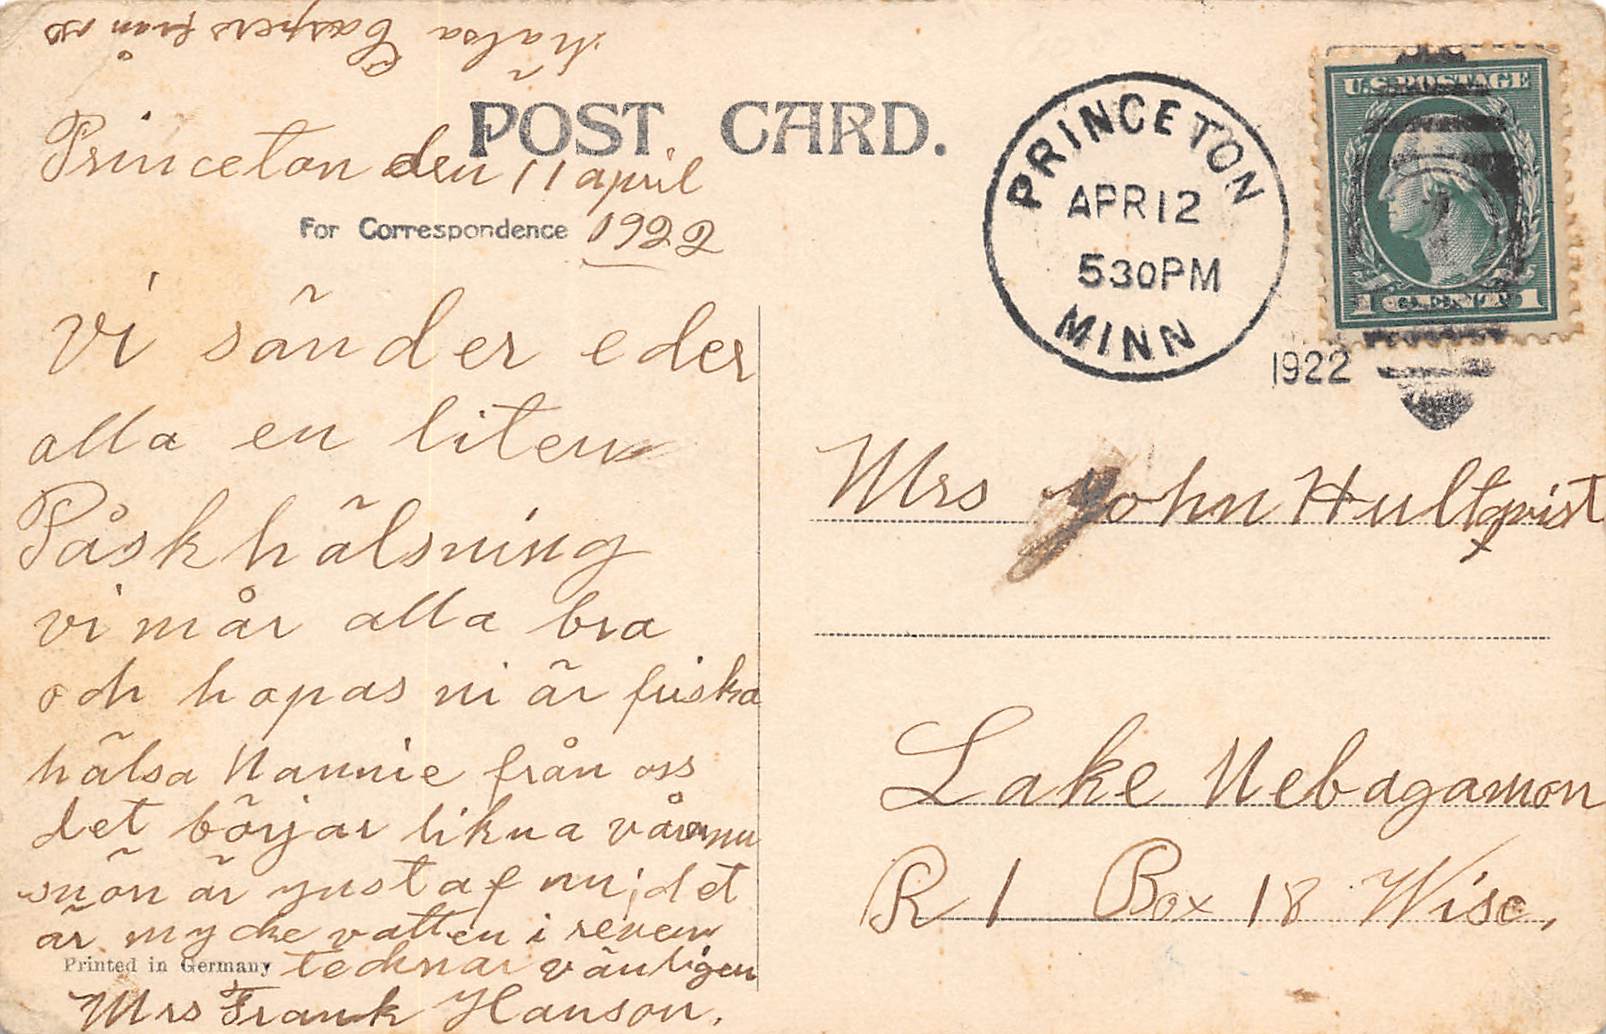 Hälsa Caspers från oss
POST CARD.
Princeton den 11 april
For Correspondence 1922
Vi sänder eder
alla en liten
Påskhälsning
vi mår alla bra
och hopas ni är friska
hälsa Nannie från oss
det börjar likna vår nu
snön är just af nu; det
är mycke vatten i reven
Printed in Germany tecknar vänligen
Mrs Frank Hanson.
PRINCETON
APR 12
530PM
MINN
1922
U.S. POSTAGE
1 CENTS 1
Mrs John Hultqvist
Lake Nebagamon
R 1 Box 18 Wisc.